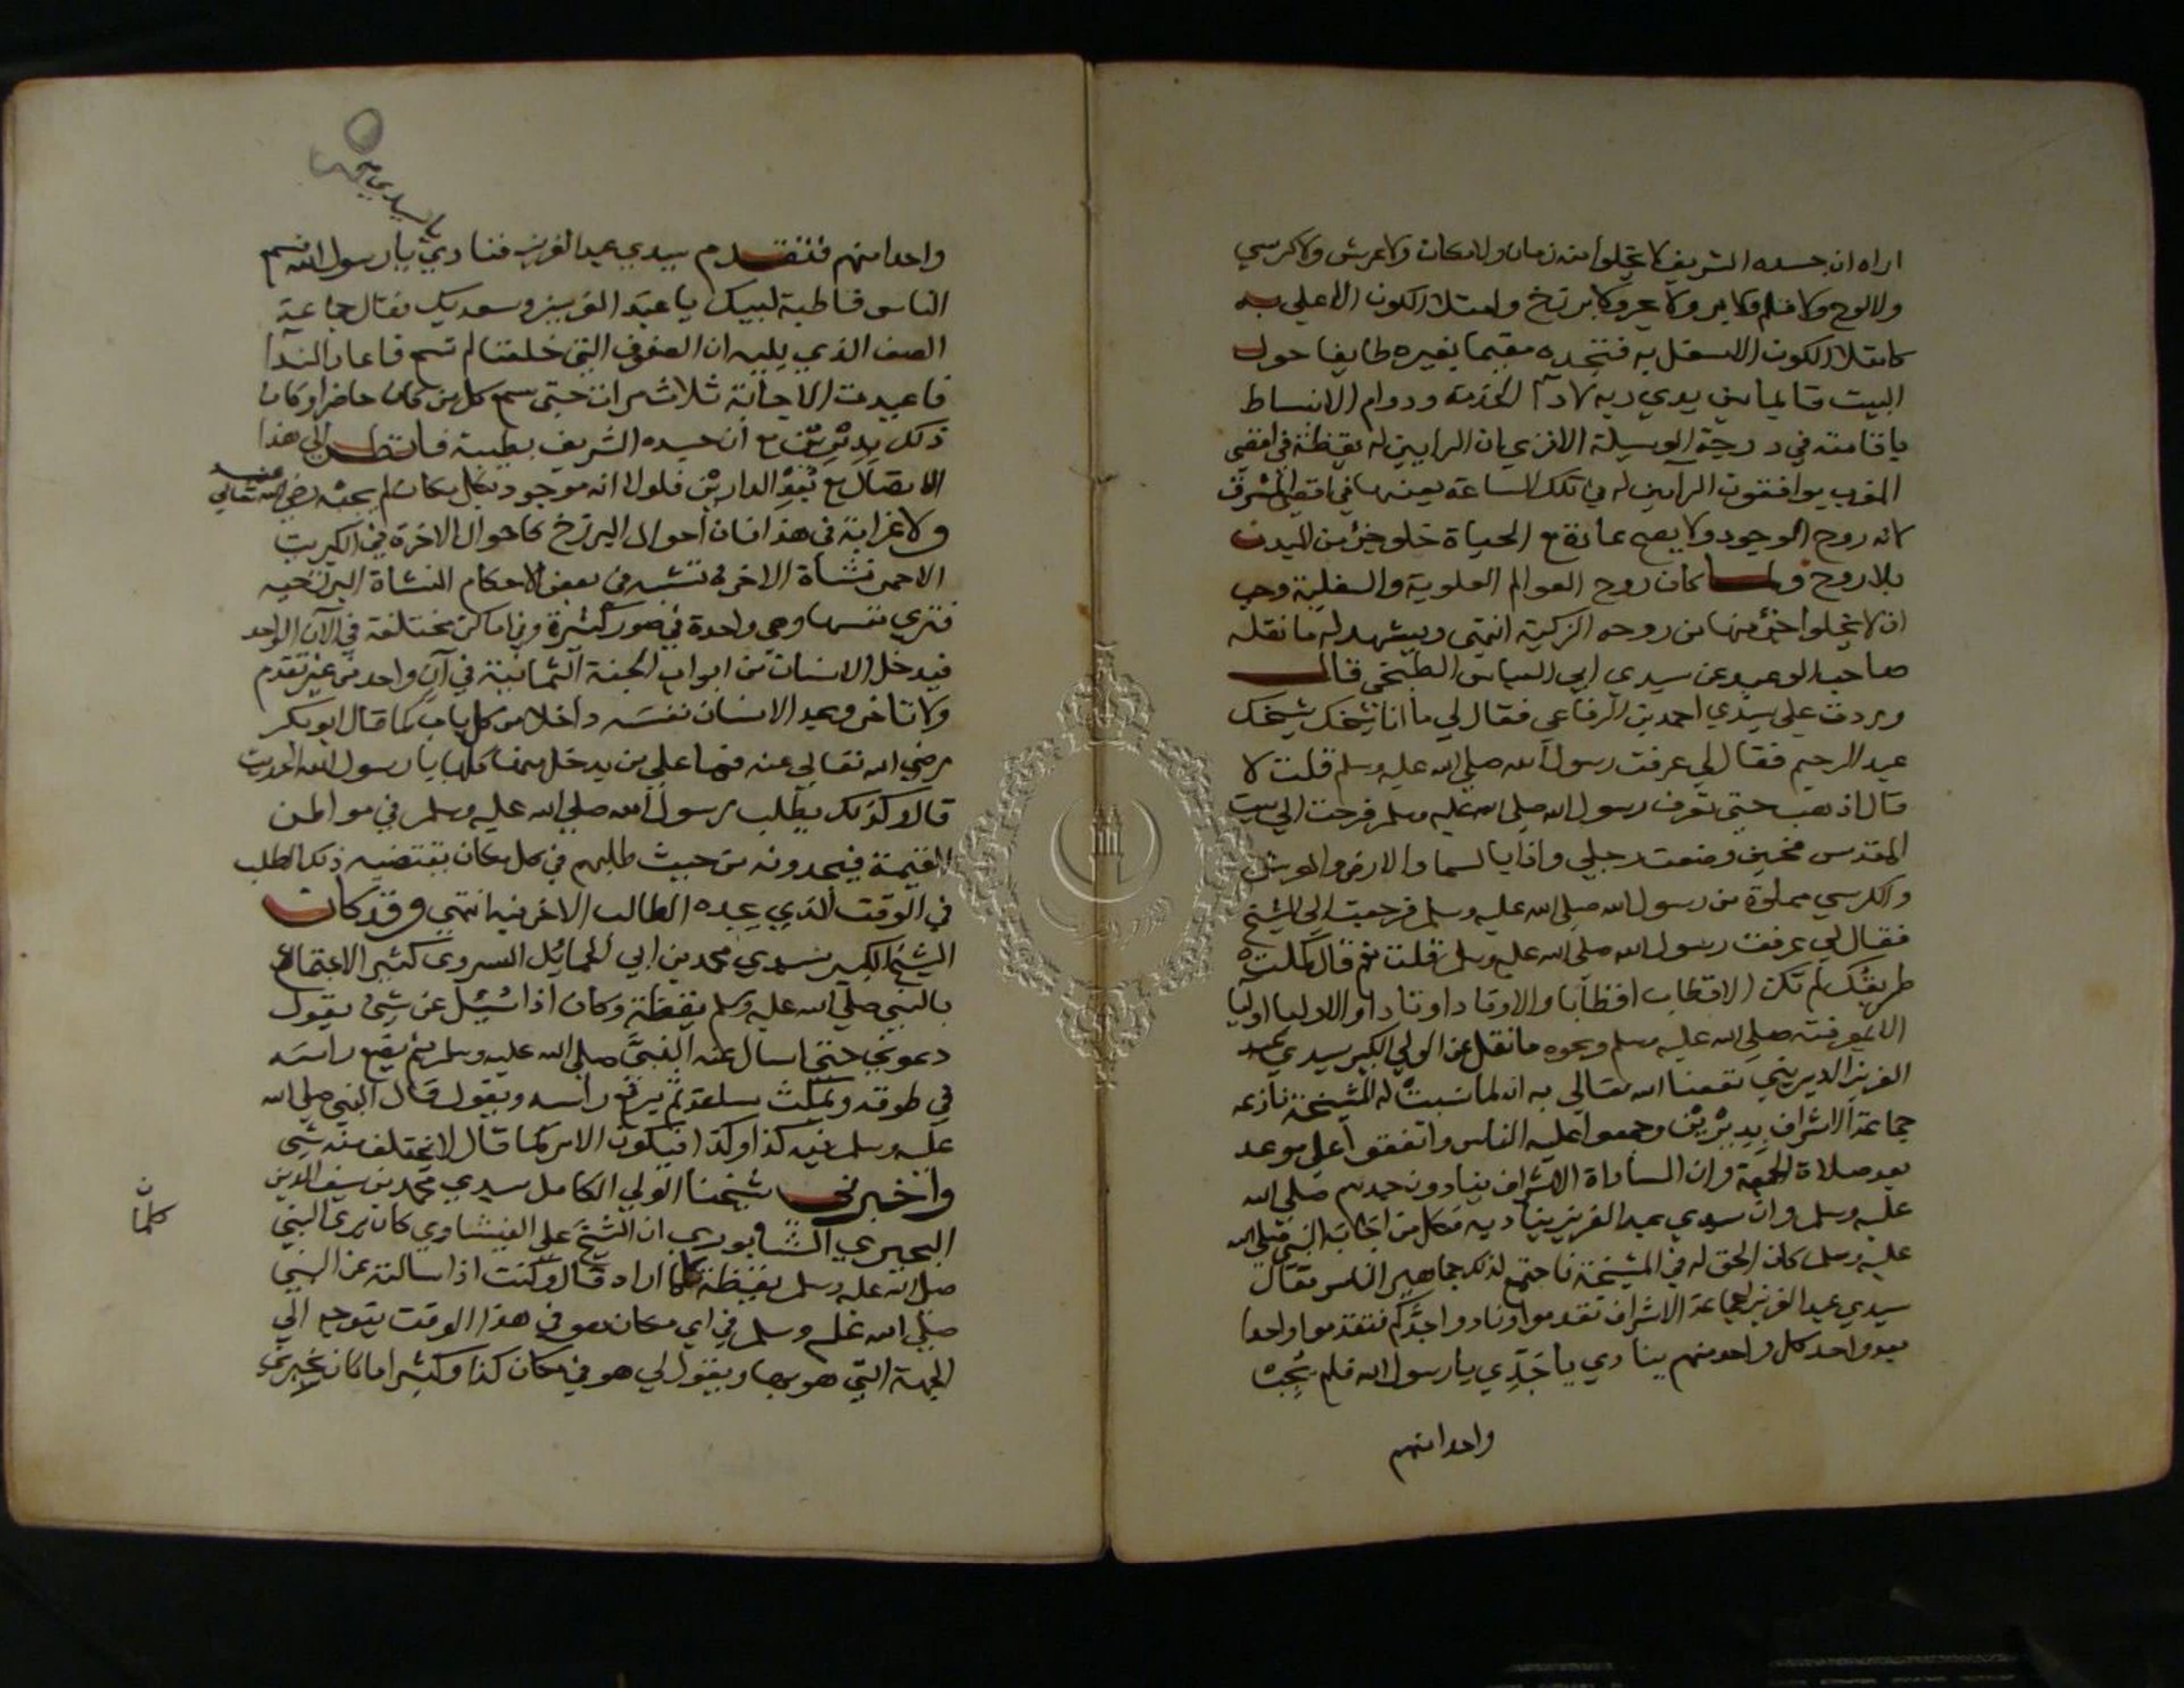 اراه ان جسده الشريف لا يخلوا منه زمان ولا مكان ولا عرش ولا كرسي
ولا لوح ولا قلم ولا بر ولا بحر ولا برزخ وامتلا الكون الاعلي به
كامتلا الكون الاسفل به فتجده مقيما بقبره طايفا حول
البيت قايما بين يدي ربه لادا الخدمة ودوام الانبساط
باقامته في درجة الوسيلة الا تري ان الرايين له يقظة في اقصي
المغرب يوافقون الرايين له في تلك الساعة بعينها في اقصي المشرق
لانه روح الوجود ولا يصح عما نقع الحياة خلو جزء من البدن
بلا روح ولما كان روح العوالم العلوية والسفلية وجب
ان لا يخلوا جزء منها من روحه الزكية انتهي ويشهد له ما نقله
صاحب الوحيد عن سيدي ابي العباس الطنجي قال
وردت علي سيدي احمد بن الرفاعي فقال لي ما انا شيخك شيخك
عبد الرحيم فقال لي عرفت رسول الله صلي الله عليه وسلم قلت لا
قال اذهب حتي تعرف رسول الله صلي الله عليه وسلم فرحت الي بيت
المقدس فحين وضعت رجلي واذا بالسما والارض والعرش
والكرسي مملوة من رسول الله صلي الله عليه وسلم فرجعت الي الشيخ
فقال لي عرفت رسول الله صلي الله عليه وسلم قلت نعم قال كملت
طريقتك لم تكن الاقطاب اقطابا والاوتاد اوتادا والاوليا اوليا
الا بمعرفته صلي الله عليه وسلم ونحوه ما نقل عن الولي الكبير سيدي عبد
العزيز الديريني نفعنا الله تعالي به انه لما نسبت له المشيخة نازعه
جماعة الاشراف بديرين وجمعوا عليه الناس واتفقوا علي موعد
بعد صلاة الجمعة وان السادة الاشراف ينادون جدهم صلي الله
عليه وسلم وان سيدي عبد العزيز يناديه فكل من اجابه النبي صلي الله
عليه وسلم كان الحق له في المشيخة فاجتمع لذلك جماهير الناس فقال
سيدي عبد العزيز لجماعة الاشراف تقدموا ونادوا جدكم فتقدموا واحدا
بعد واحد كل واحد منهم ينادي يا جدي يا رسول الله فلم يجب
واحدا منهم
يا سيدي
واحدا منهم فتقدم سيدي عبد العزيز فنادي يا رسول الله فسمع
الناس قاطبة لبيك يا عبد العزيز وسعديك فقال جماعة
الصف الذي يليه ان الصفوف التي خلفنا لم تسمع فاعاد الندا
فاعيدت الاجابة ثلاث مرات حتي سمع كل من كان حاضرا وكان
ذلك بديرين مع ان جسده الشريف بطيبة فانظر الي هذا
الاتصال مع بعد الدارين فلولا انه موجود بكل مكان لم يجبه رضي الله تعالي عنه
ولا غرابة في هذا فان احوال البرزخ كاحوال الاخرة في الكبريت
الاحمر نشاة الاخرة تشبه في بعض الاحكام النشاة البرزخيه
فتري نفسها وهي واحدة في صور كثيرة وفي اماكن مختلفة في الآن الواحد
فيدخل الانسان من ابواب الجنة الثمانية في آن واحد من غير تقدم
ولا تاخر ويجد الانسان نفسه داخلا من كل باب كما قال ابو بكر
رضي الله تعالي عنه فما علي من يدخل منها كلها يا رسول الله الحديث
قال وكذلك يطلب رسول الله صلي الله عليه وسلم في مواطن
القيمة فيجدونه من حيث طلبهم في كل مكان يقتضيه ذلك الطلب
في الوقت الذي يجده الطالب الاخر فيه انتهي وقد كان
الشيخ الكبير سيدي محمد بن ابي الحمايل السروي كثير الاجتماع
بالنبي صلي الله عليه وسلم يقظة وكان اذا سئل عن شئ يقول
دعوني حتي اسال عنه النبي صلي الله عليه وسلم ثم يضع راسه
في طوقه ويمكث ساعة ثم يرفع راسه ويقول قال النبي صلي الله
عليه وسلم فيه كذا وكذا فيكون الامر كما قال لا يختلف منه شئ
واخبرني شيخنا الولي الكامل سيدي محمد بن سيف الدين
البحيري الشابوري ان الشيخ علي الفيشاوي كان يري النبي
صلي الله عليه وسلم يقظة كلما اراد قال وكنت اذا سالته عن النبي
صلي الله عليه وسلم في اي مكان هو في هذا الوقت يتوجه الي
الجهة التي هو بها ويقول لي هو في مكان كذا وكثيرا ما كان يخبرني
كلما ن